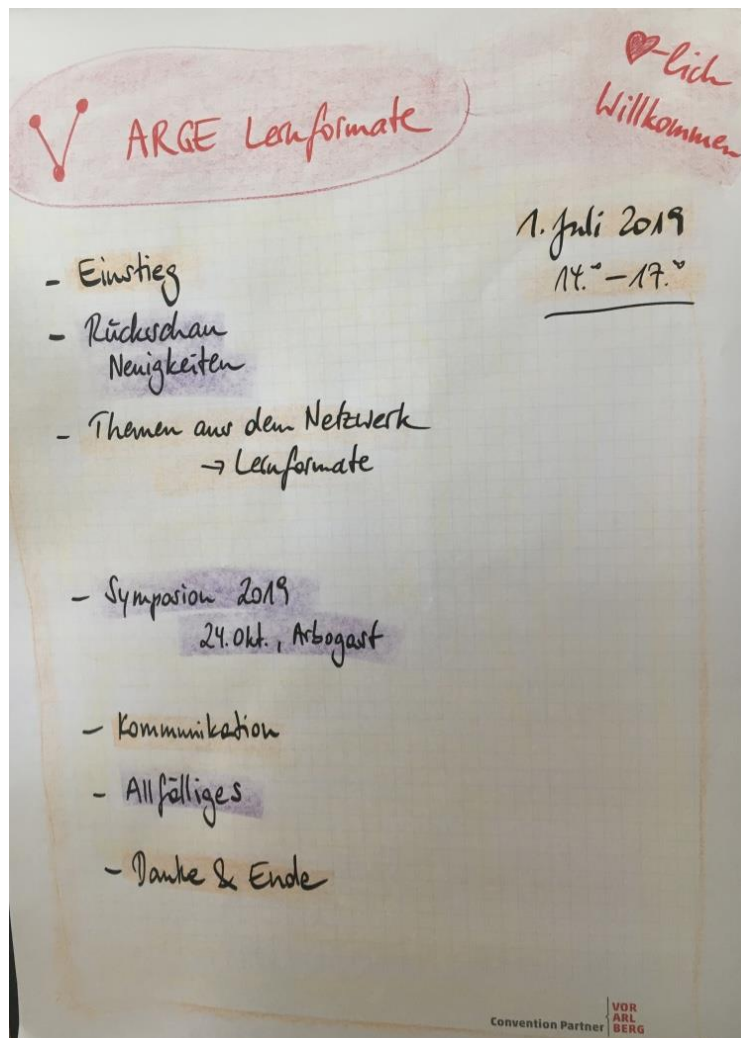 ARGE Lernformate
♥-lich
Willkommen
1. Juli 2019
14.⁰⁰ – 17.⁰⁰
- Einstieg
- Rückschau
Neuigkeiten
- Themen aus dem Netzwerk
→ Lernformate
- Symposion 2019
24. Okt., Arbogast
- Kommunikation
- Allfälliges
- Danke & Ende
Convention Partner
VOR
ARL
BERG